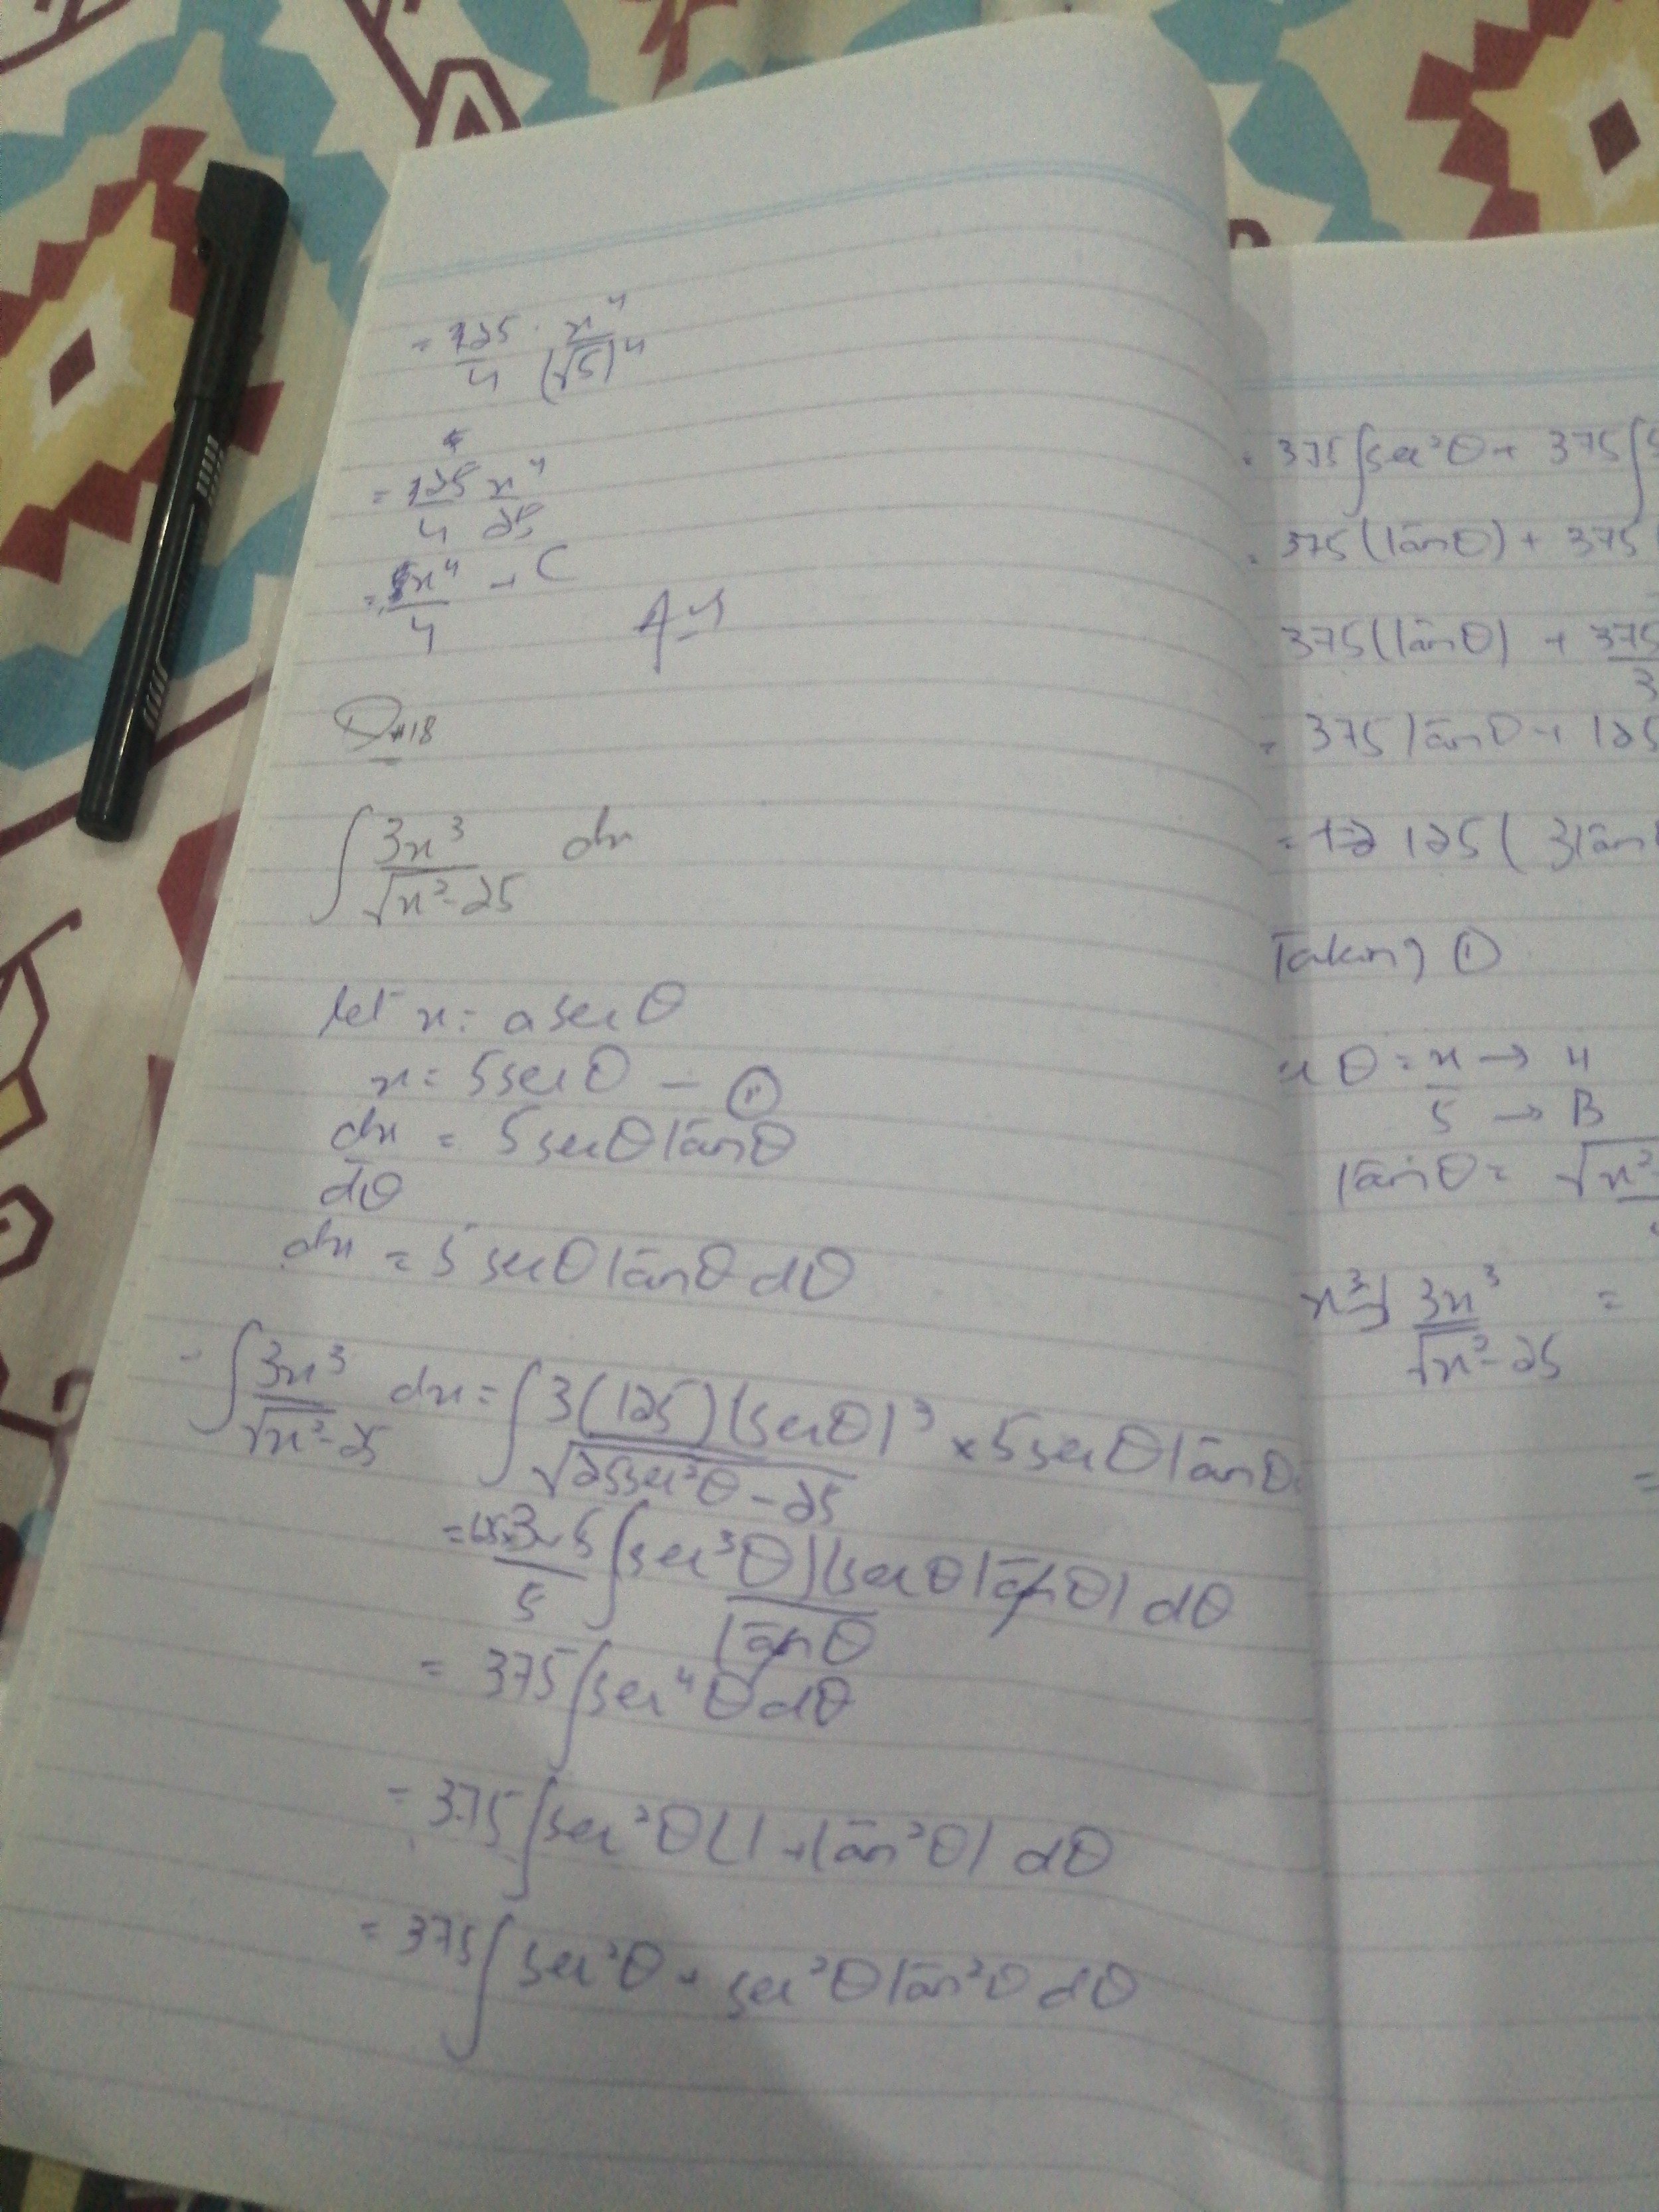 = 125/4 · x⁴/(√5)⁴
= 125/4 x⁴/25
= 5x⁴/4 + C
Ans
Q#18
∫ 3x³/√x²-25 dx
let x = a secθ
x = 5secθ — ①
dx/dθ = 5secθtanθ
dx = 5secθtanθdθ
= ∫ 3x³/√x²-25 dx = ∫ 3(125)(secθ)³/√25sec²θ-25 × 5secθtanθ
= 125.3×5/5 ∫ (sec³θ)(secθtanθ)/tanθ dθ
= 375∫sec⁴θdθ
= 375∫sec²θ(1+tan²θ) dθ
= 375∫sec²θ + sec²θtan²θdθ
= 375∫sec²θ + 375∫
= 375(tanθ) + 375
375(tanθ) + 375/3
= 375tanθ + 125
= 125( 3tan
Taking ①
θ = x/5 → H → B
tanθ = √x²-
3x³/√x²-25 =
=